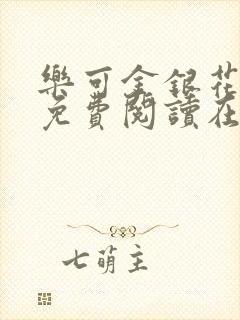 樂可金銀花
免費閱讀在
七萌主